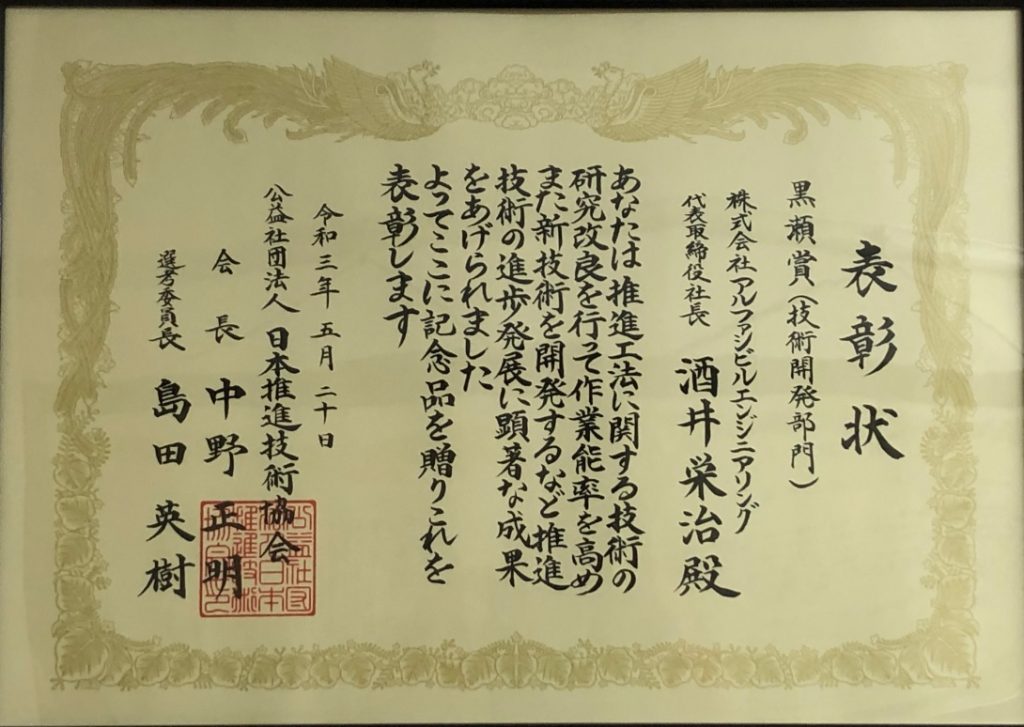 表彰状
黒瀬賞(技術開発部門)
株式会社アルファシビルエンジニアリング
代表取締役社長 酒井栄治殿
あなたは推進工法に関する技術の
研究改良を行って作業能率を高め
また新技術を開発するなど推進
技術の進歩発展に顕著な成果
をあげられました
よってここに記念品を贈りこれを
表彰します
令和三年五月二十日
公益社団法人 日本推進技術協会
会長 中野正明
選考委員長 島田英樹